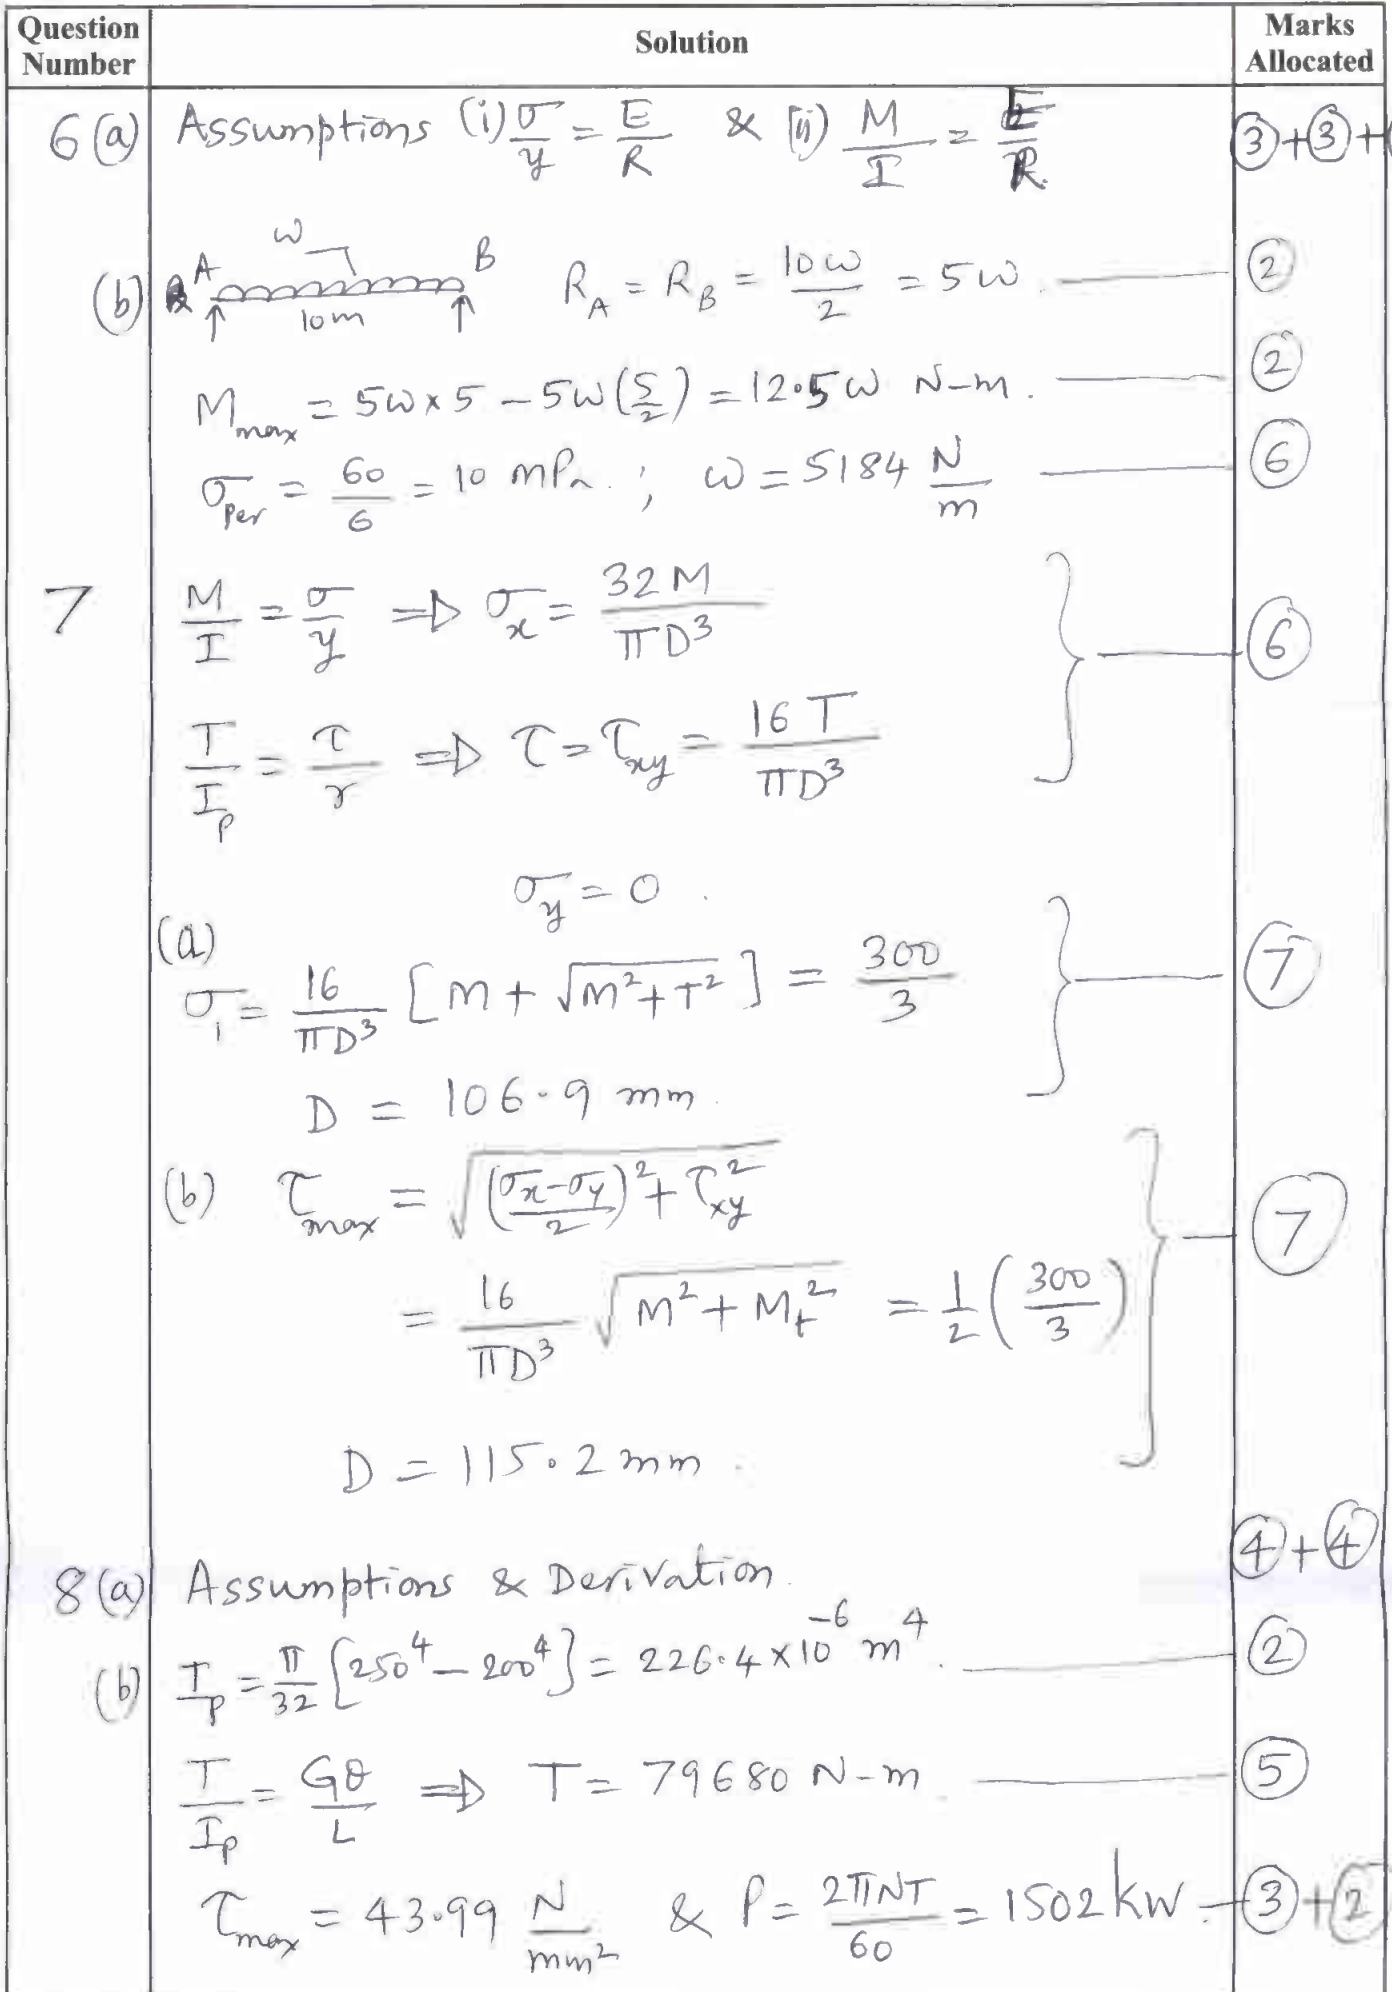 Question Number Solution Marks Allocated
6(a) Assumptions (i) σ/y = E/R & (ii) M/I = E/R. (3)+(3)+
(b) A w B 10m R_A = R_B = 10w/2 = 5w. (2)
M_max = 5w×5 – 5w(5/2) = 12.5w N-m. (2)
σ_per = 60/6 = 10 mPa. ; w = 5184 N/m (6)
7 M/I = σ/y ⇒ σ_x = 32M/πD³ (6)
T/I_p = τ/r ⇒ τ = τ_xy = 16T/πD³
σ_y = 0.
(a)
σ_1 = 16/πD³ [M + √M²+T²] = 300/3 (7)
D = 106.9 mm.
(b) τ_max = √((σ_x-σ_y)/2)² + τ_xy² (7)
= 16/πD³ √M² + M_t² = 1/2 (300/3)
D = 115.2 mm.
8(a) Assumptions & Derivation. (4)+(4)
(b) I_p = π/32 [250⁴ – 200⁴] = 226.4×10⁻⁶ m⁴. (2)
T/I_p = Gθ/L ⇒ T = 79680 N-m (5)
τ_max = 43.99 N/mm² & P = 2πNT/60 = 1502 kW (3)+(2)